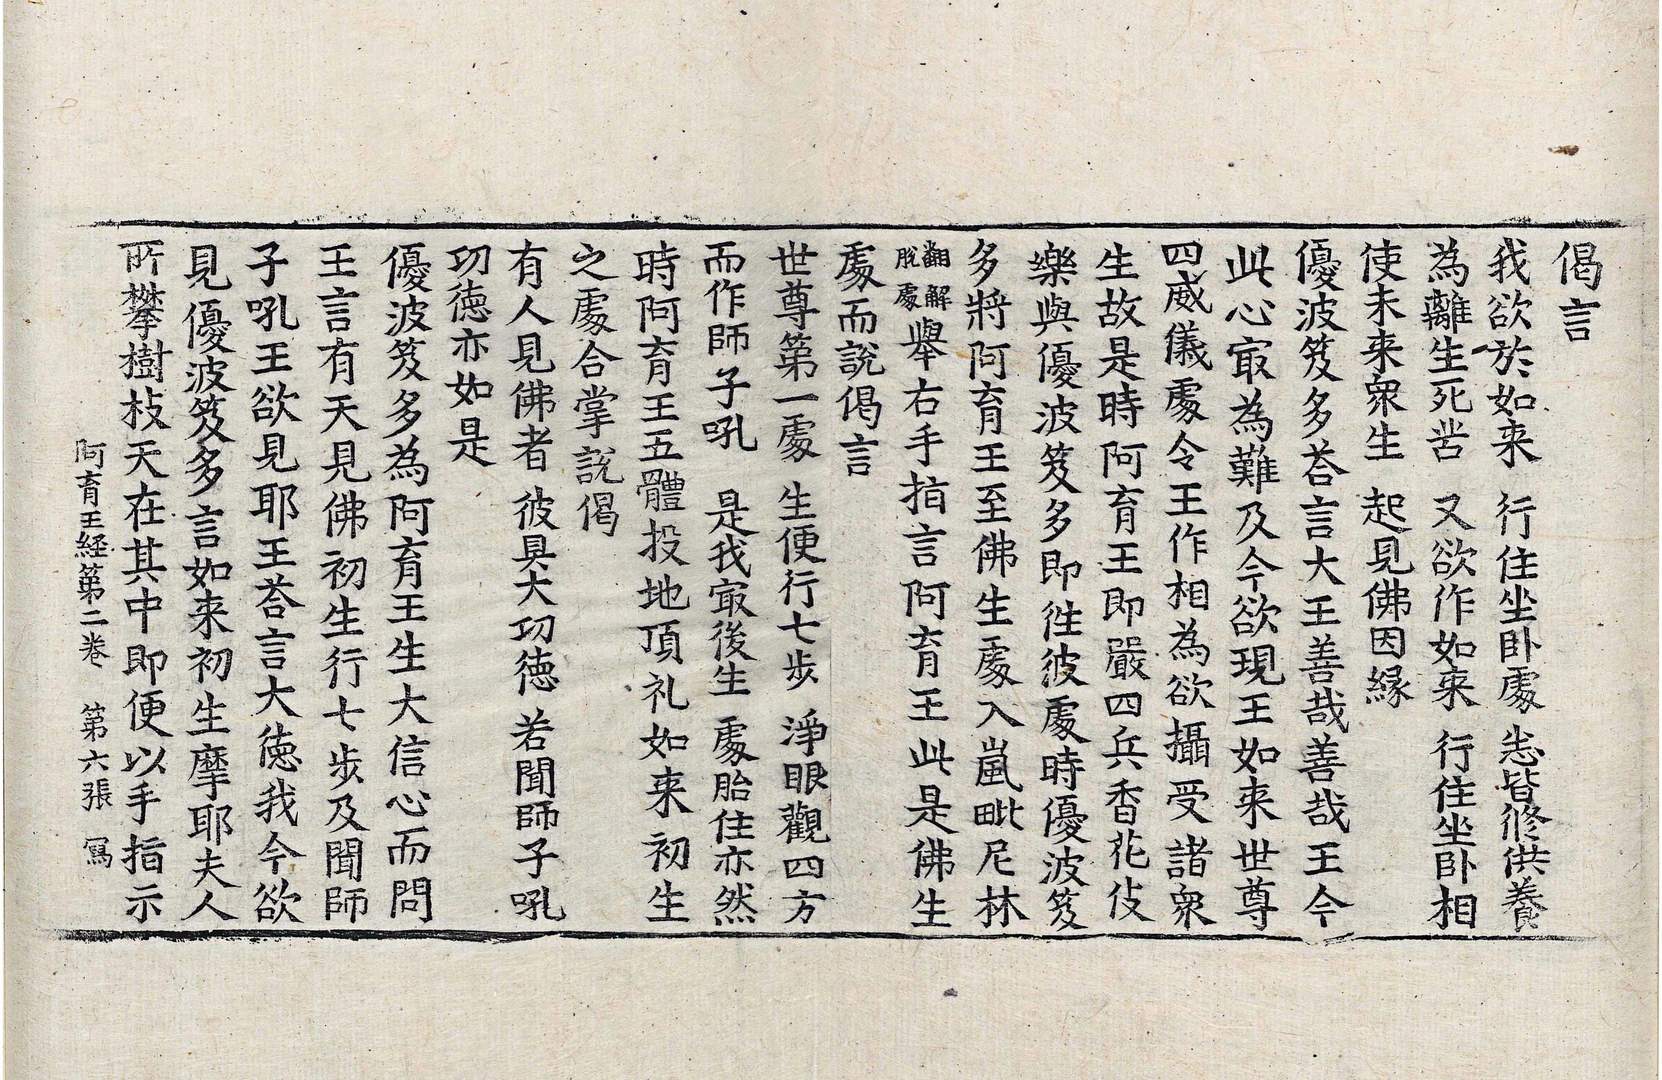 偈言
我欲於如来　行住坐卧處　恙皆修供養
為離生死苦　又欲作如来　行住坐卧相
使未来衆生　起見佛因縁
優波笈多荅言大王善哉善哉王今
此心㝡為難及今欲現王如来世尊
四威儀處令王作相為欲攝受諸衆
生故是時阿育王即嚴四兵香花伎
樂與優波笈多即徃彼處時優波笈
多將阿育王至佛生處入嵐毗尼林
翻解脫處舉右手指言阿育王此是佛生
處而說偈言
世尊第一處　生便行七步　淨眼觀四方
而作師子吼　是我㝡後生　處胎住亦然
時阿育王五體投地頂礼如来初生
之處合掌說偈
有人見佛者　彼具大功徳　若聞師子吼
功徳亦如是
優波笈多為阿育王生大信心而問
王言有天見佛初生行七步及聞師
子吼王欲見耶王荅言大徳我今欲
見優波笈多言如来初生摩耶夫人
所攀樹枝天在其中即便以手指示
阿育王経第二卷　第六張　寫